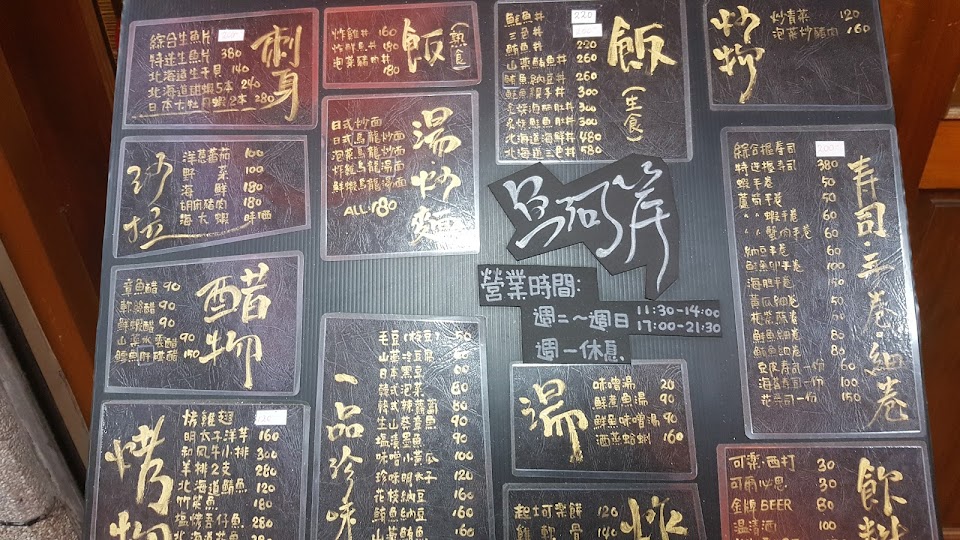 刺身
綜合生魚片
特選生魚片 380
北海道生干貝 140
北海道甜蝦5本 240
日本大牡丹蝦2本 280
飯(熟食)
炸雞丼 160
炸鮮魚丼 180
泡菜豬肉丼 180
飯(生食)
鮭魚丼 220
三色丼
鮪魚丼 220
山藥鮪魚丼 260
鮪魚納豆丼 260
鮭魚親子丼 300
300
300
北海道海鮮丼 480
北海道三色丼 580
炒物
炒青菜 120
泡菜炒豬肉 160
沙拉
洋蔥蕃茄 100
野菜 100
海鮮 180
胡麻豬肉 180
海大蝦 時價
湯·炒麵
日式炒麵
日式烏龍炒麵
泡菜烏龍湯麵
炸雞烏龍湯麵
鮮蝦烏龍湯麵
ALL:180
魚河岸
營業時間:
週二～週日 11:30-14:00
17:00-21:30
週一休息
壽司·手卷·細卷
綜合握壽司
特選握壽司 380
蝦手卷 50
蘆筍手卷 50
〃〃蝦手卷 60
〃〃蟹肉手卷 60
納豆手卷 60
鮭魚卵手卷 100
海膽手卷 150
黃瓜細卷 50
50
鮭魚細卷 80
鮪魚細卷 80
豆皮壽司一份 60
海苔壽司一份 100
花壽司一份 150
醋物
章魚醋 90
軟絲醋 90
鮮蝦醋 90
山藥水雲醋 90
鱈魚肝醋 150
一品珍味
毛豆 50
山藥冷豆腐
日本黑豆
韓式泡菜 80
80
生山藥 90
90
味噌小黃瓜 100
珍味明太子 120
花枝納豆 160
鮪魚納豆 160
山藥鮪魚 160
湯
味噌湯 20
鮮魚湯 90
鮮魚味噌湯 90
酒蒸蛤蜊 160
烤物
烤雞翅
明太子洋芋 160
和風牛小排 300
羊排2支 280
北海道鯖魚 120
竹筴魚 180
塩烤香仔魚 280
炸
起司可樂餅 120
雞軟骨 140
飲料
可樂·西打 30
可爾必思 30
金牌BEER 80
溫清酒 100